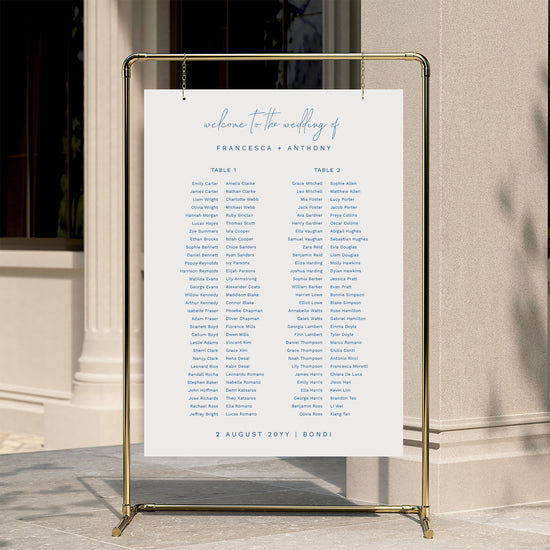 welcome to the wedding of
FRANCESCA + ANTHONY
TABLE 1 TABLE 2
Emily Carter Amelia Clarke Grace Mitchell Sophie Allen
James Carter Nathan Clarke Leo Mitchell Matthew Allen
Liam Wright Charlotte Webb Mia Foster Lucy Porter
Olivia Wright Michael Webb Jack Foster Jacob Porter
Hannah Morgan Ruby Sinclair Ava Gardner Freya Collins
Lucas Hayes Thomas Scott Henry Gardner Oscar Collins
Zoe Summers Isla Cooper Ella Vaughan Abigail Hughes
Ethan Brooks Noah Cooper Samuel Vaughan Sebastian Hughes
Sophie Bennett Chloe Sanders Zara Reid Evie Douglas
Daniel Bennett Ryan Sanders Benjamin Reid Liam Douglas
Poppy Reynolds Ivy Parsons Eliza Harding Molly Hawkins
Harrison Reynolds Elijah Parsons Joshua Harding Dylan Hawkins
Matilda Evans Lily Armstrong Sophia Barber Jessica Pratt
George Evans Alexander Coats William Barber Evan Pratt
Willow Kennedy Maddison Blake Harriet Lowe Bonnie Simpson
Arthur Kennedy Connor Blake Elliot Lowe Blake Simpson
Isabelle Fraser Phoebe Chapman Annabelle Watts Rose Hamilton
Adam Fraser Oliver Chapman Caleb Watts Gabriel Hamilton
Scarlett Boyd Florence Mills Georgia Lambert Emma Doyle
Callum Boyd Owen Mills Finn Lambert Tyler Doyle
Leslie Adams Vincent Kim Daniel Thompson Marco Romano
Sherri Clark Grace Kim Grace Thompson Giulia Conti
Nancy Clark Neha Desai Noah Thompson Antonio Ricci
Leonard Rios Kabir Desai Lily Thompson Francesca Moretti
Randall Rocha Leonardo Romano James Harris Chiara De Luca
Stephen Baker Isabella Romano Emily Harris Jisoo Han
John Hoffman Demi Katsaros Ella Harris Kevin Lim
Jose Richards Theo Katsaros George Harris Brandon Teo
Rachael Ross Ella Romano Benjamin Ross Li Wei
Jeffrey Bright Lucas Romano Olivia Ross Xiang Tan
2 AUGUST 20YY | BONDI